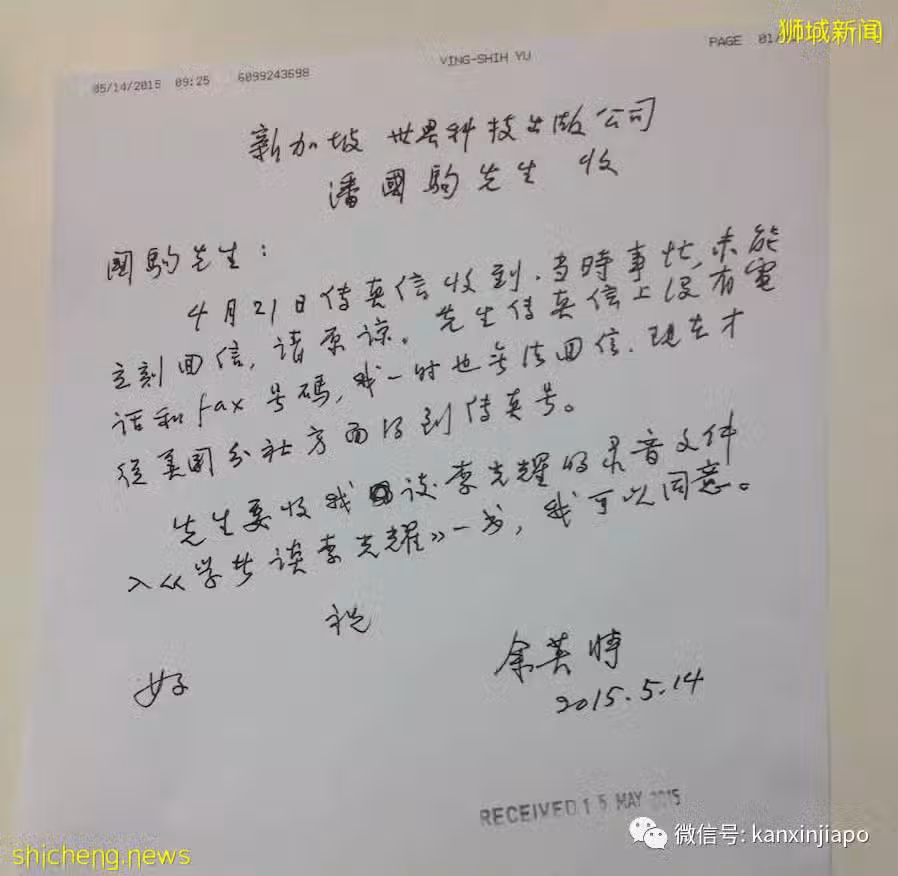 狮城新闻
05/14/2015 09:25 6099243698 YING-SHIH YU PAGE 01/
新加坡 世界科技出版公司
潘國駒先生 收
國駒先生：
4月21日传真信收到，当時事忙，未能
立刻回信，请原谅。先生传真信上没有電
话和fax号碼，我一时也无法回信．现在才
从美国分社方面得到传真号。
先生要收我谈李光耀的录音文件
入《学者谈李光耀》一书，我可以同意。
祝
好
余英時
2015.5.14
RECEIVED 15 MAY 2015
微信号: kanxinjiapo
shicheng.news